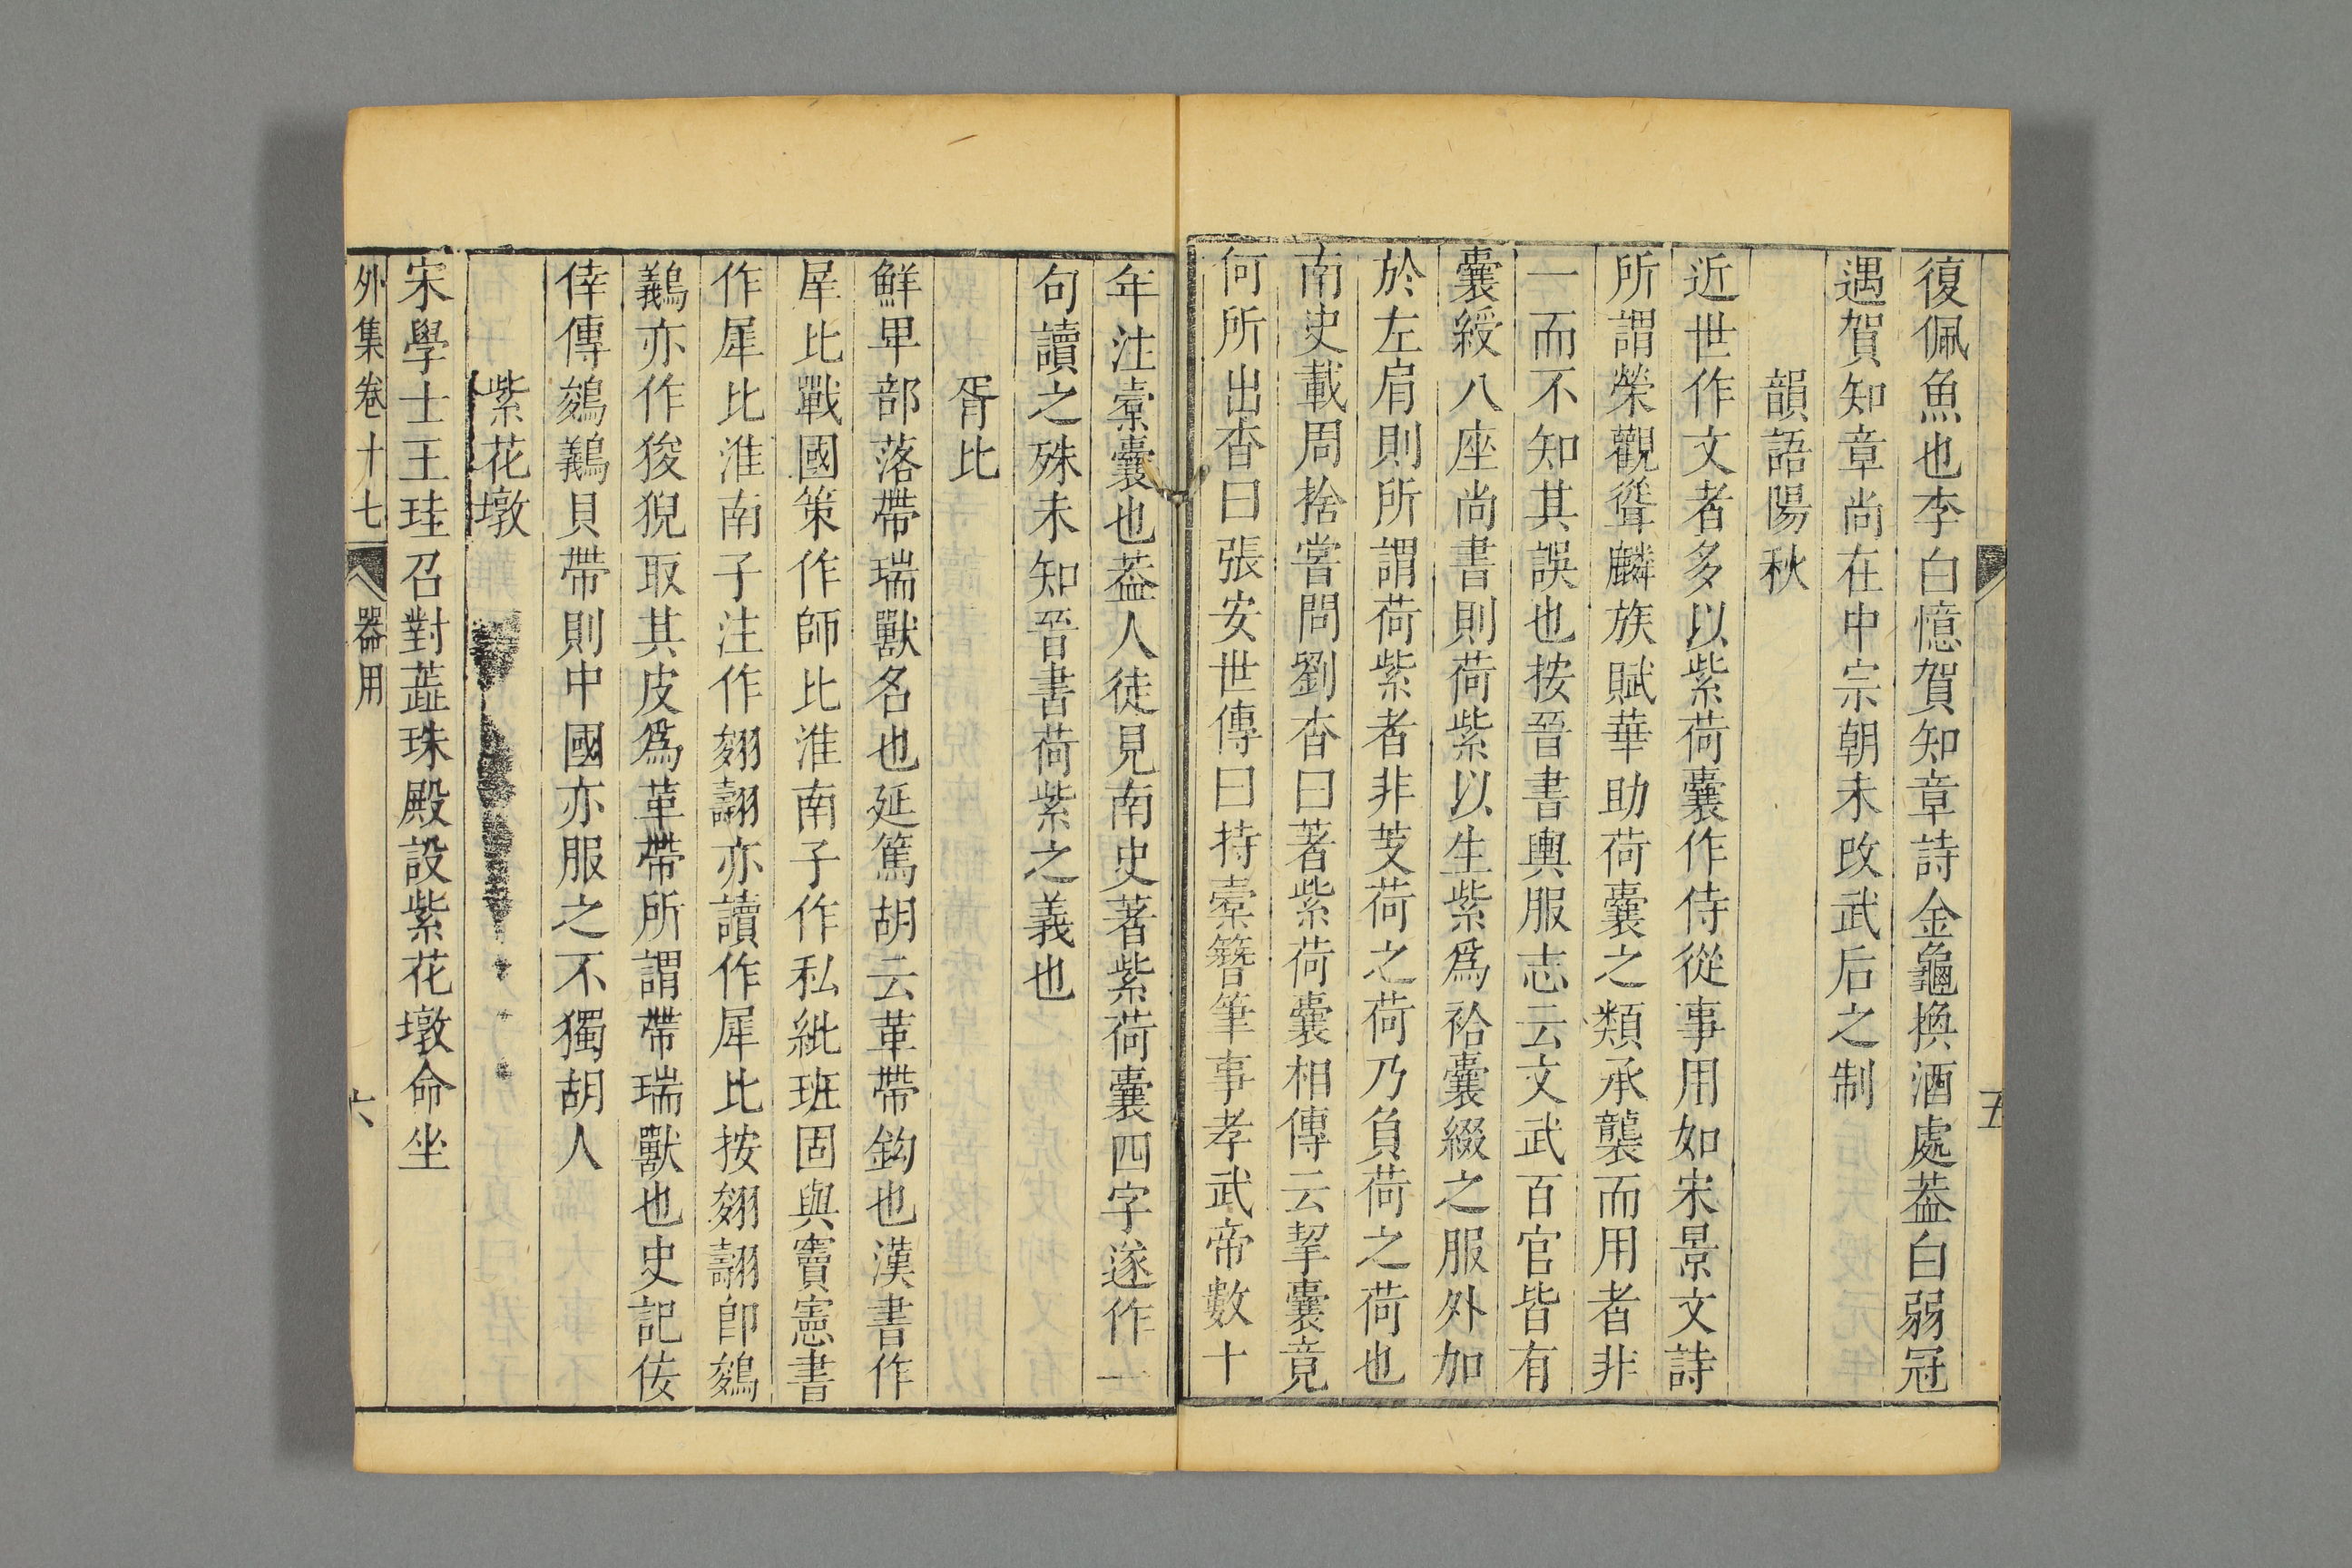 五
復佩魚也李白憶賀知章詩金龜換酒處葢白弱冠
遇賀知章尚在中宗朝未改武后之制
韻語陽秋
近世作文者多以紫荷囊作侍從事用如宋景文詩
所謂榮觀聳麟族賦華助荷囊之類承襲而用者非
一而不知其誤也按晉書輿服志云文武百官皆有
囊綬八座尚書則荷紫以生紫爲袷囊綴之服外加
於左肩則所謂荷紫者非芰荷之荷乃負荷之荷也
南史載周捨嘗問劉杳曰著紫荷囊相傳云挈囊竟
何所出杳曰張安世傳曰持橐簪筆事孝武帝數十
年注橐囊也葢人徒見南史著紫荷囊四字遂作一
句讀之殊未知晉書荷紫之義也
胥比
鮮卑部落帶瑞獸名也延篤胡云革帶鈎也漢書作
犀比戰國策作師比淮南子作私紕班固與竇憲書
作犀比淮南子注作䴔䴊亦讀作犀比按䴔䴊即鵕
鸃亦作狻猊取其皮爲革帶所謂帶瑞獸也史記佞
倖傳鵕鸃貝帶則中國亦服之不獨胡人
紫花墩
宋學士王珪召對蕋珠殿設紫花墩命坐
外集卷十七 器用 六